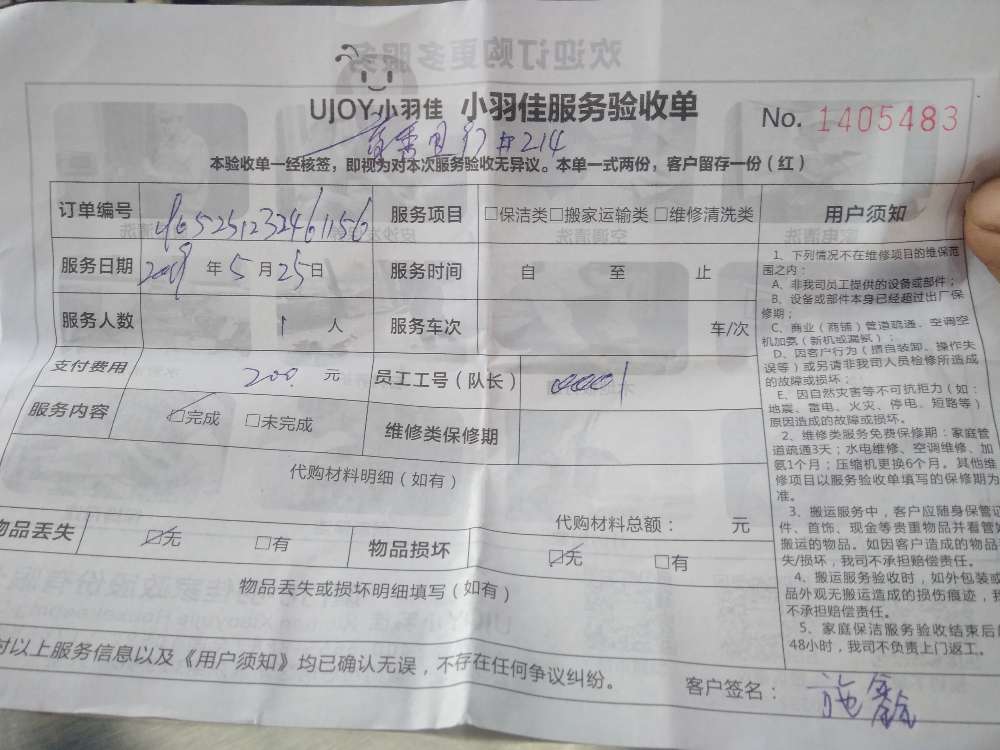 UJOY小羽佳 小羽佳服务验收单
No. 1405483
#214
本验收单一经核签，即视为对本次服务验收无异议。本单一式两份，客户留存一份（红）
订单编号
服务项目 □保洁类□搬家运输类□维修清洗类
用户须知
服务日期 年5月25日
服务时间 自 至 止
服务人数 1 人
服务车次 车/次
支付费用 200. 元
员工工号（队长） 0001
服务内容 □完成 □未完成
维修类保修期
代购材料明细（如有）
代购材料总额： 元
物品丢失 □无 □有
物品损坏 □无 □有
物品丢失或损坏明细填写（如有）
对以上服务信息以及《用户须知》均已确认无误，不存在任何争议纠纷。
客户签名：施
1、下列情况不在维修项目的维保范
围之内：
A、非我司员工提供的设备或部件；
B、设备或部件本身已经超过出厂保
修期；
C、商业（商铺）管道疏通、空调空
机加氨（新机或漏氨）；
D、因客户行为（擅自装卸、操作失
误等）或另请非我司人员检修所造成
的故障或损坏；
E、因自然灾害等不可抗拒力（如：
地震、雷电、火灾、停电、短路等）
原因造成的故障或损坏。
2、维修类服务免费保修期：家庭管
道疏通3天；水电维修、空调维修、加
氨1个月；压缩机更换6个月。其他维
修项目以服务验收单填写的保修期为
准。
3、搬运服务中，客户应随身保管证
件、首饰、现金等贵重物品并看管
搬运的物品。如因客户造成的物品
失/损坏，我司不承担赔偿责任。
4、搬运服务验收时，如外包装或
品外观无搬运造成的损伤痕迹，我
不承担赔偿责任。
5、家庭保洁服务验收结束后
48小时，我司不负责上门返工。